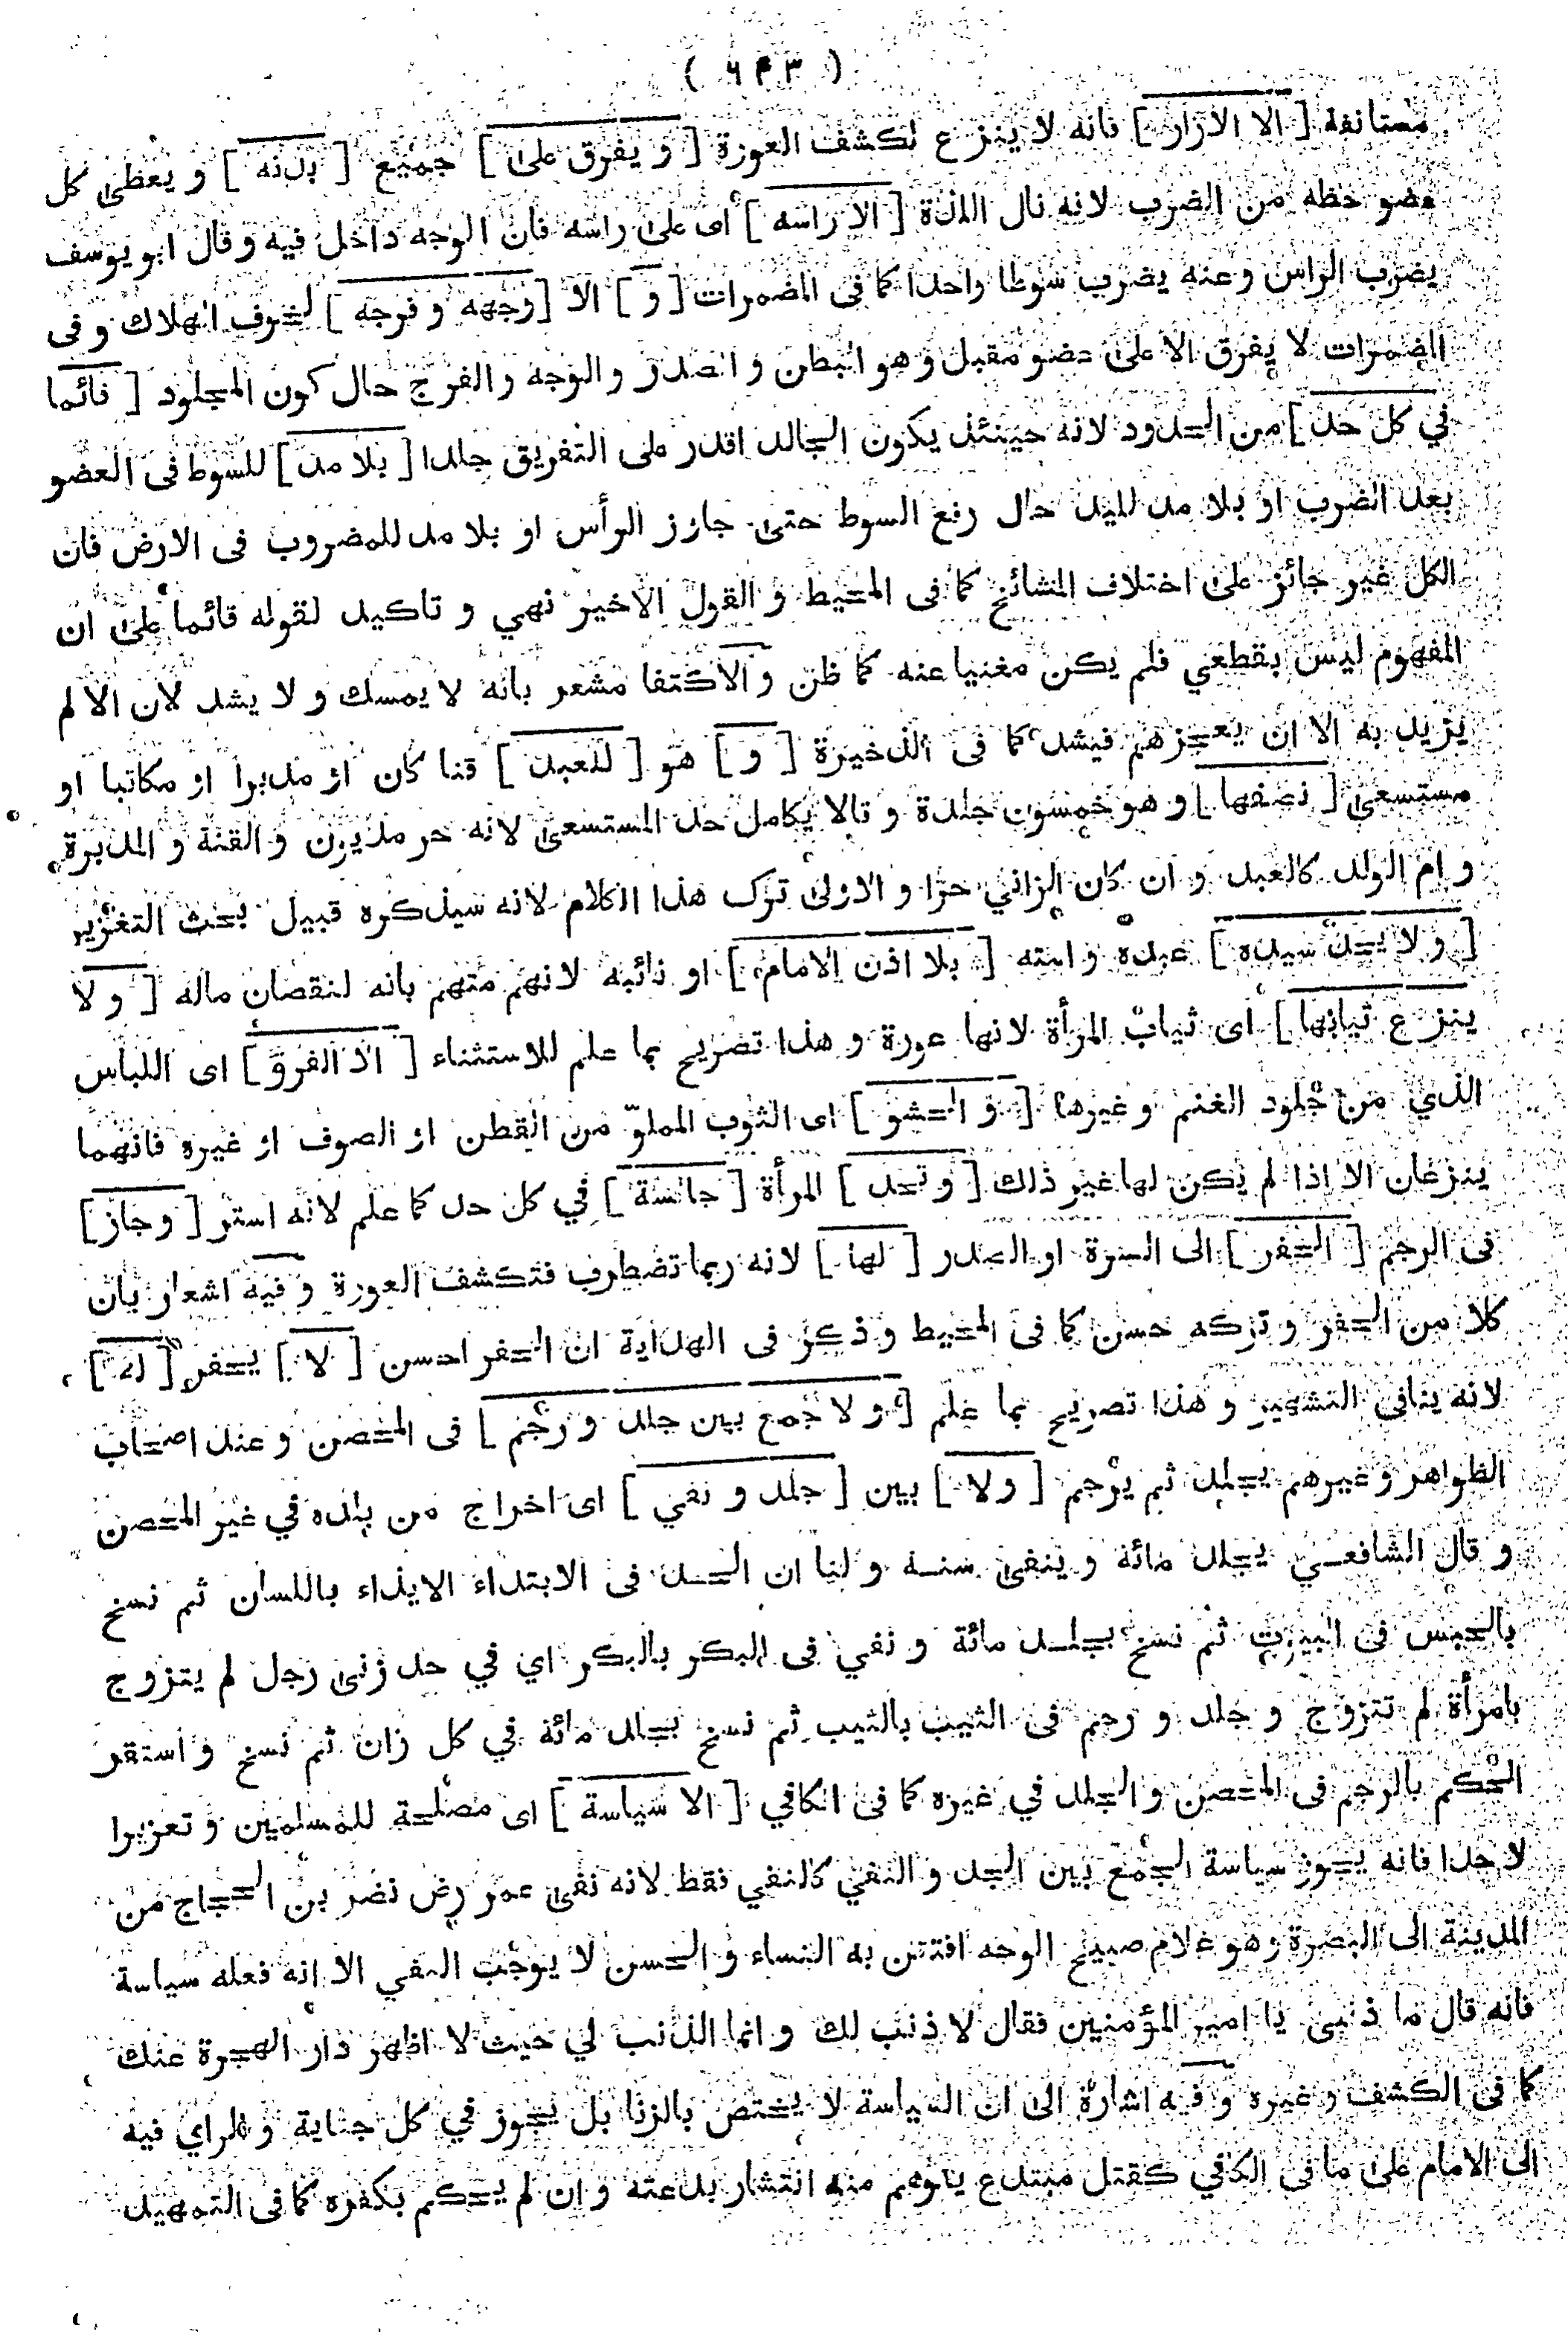 ( ٦٤٣ )
مستأنفة [ الا الازار ] فانه لا ينزع لكشف العورة [ و يفرق على ] جميع [ بدنه ] و يعطى كل
عضو حظه من الضرب لانه نال اللذة [ الا راسه ] اى على راسه فان الوجه داخل فيه و قال ابو يوسف
يضرب الراس و عنه يضرب سوطا واحدا كما فى المضمرات [ و ] الا [ وجهه و فرجه ] لخوف الهلاك و فى
المضمرات لا يفرق الا على عضو مقبل و هو البطن و الصدر و الوجه و الفرج حال كون المجلود [ قائما
في كل حد ] من الحدود لانه حينئذ يكون الجالد اقدر على التفريق جلدا [ بلا مد ] للسوط فى العضو
بعد الضرب او بلا مد لليد حال رفع السوط حتى جاوز الرأس او بلا مد للمضروب فى الارض فان
الكل غير جائز على اختلاف المشائخ كما فى المحيط و القول الاخير نهي و تاكيد لقوله قائما على ان
المفهوم ليس بقطعي فلم يكن مغنيا عنه كما ظن و الاكتفا مشعر بانه لا يمسك و لا يشد لان الالم
يزيد به الا ان يعجزهم فيشد كما فى الذخيرة [ و ] هو [ للعبد ] قنا كان او مدبرا او مكاتبا او
مستسعى [ نصفها ] و هو خمسون جلدة و قالا يكامل حد المستسعى لانه حر مديون و القنة و المدبرة
و ام الولد كالعبد و ان كان الزاني حرا و الاولى ترك هذا الكلام لانه سيذكره قبيل بحث التعزير
[ و لا يحد سيده ] عبده و امته [ بلا اذن الامام ] او نائبه لانهم متهم بانه لنقصان ماله [ و لا
ينزع ثيابها ] اى ثياب المرأة لانها عورة و هذا تصريح بما علم للاستثناء [ الا الفرو ] اى اللباس
الذي من جلود الغنم و غيرها [ و الحشو ] اى الثوب المملو من القطن او الصوف او غيره فانهما
ينزعان الا اذا لم يكن لها غير ذلك [ و تحد ] المرأة [ جالسة ] في كل حد كما علم لانه استر [ و جاز ]
فى الرجم [ الحفر ] الى السرة او الصدر [ لها ] لانه ربما تضطرب فتكشف العورة و فيه اشعار بان
كلا من الحفر و تركه حسن كما فى المحيط و ذكر فى الهداية ان الحفر احسن [ لا ] يحفر [ له ]
لانه ينافى التشهير و هذا تصريح بما علم [ و لا جمع بين جلد و رجم ] فى المحصن و عند اصحاب
الظواهر و غيرهم يجلد ثم يرجم [ ولا ] بين [ جلد و نفي ] اى اخراج من بلده في غير المحصن
و قال الشافعي يجلد مائة و ينفى سنة و لنا ان الحد فى الابتداء الايذاء باللسان ثم نسخ
بالحبس فى البيوت ثم نسخ بجلد مائة و نفي فى البكر بالبكر اي في حد زنى رجل لم يتزوج
بامرأة لم تتزوج و جلد و رجم فى الثيب بالثيب ثم نسخ بجلد مائة في كل زان ثم نسخ و استقر
الحكم بالرجم فى المحصن و الجلد في غيره كما فى الكافي [ الا سياسة ] اى مصلحة للمسلمين و تعزيرا
لا حدا فانه يجوز سياسة الجمع بين الجلد و النفي كالنفي فقط لانه نفى عمر رض نضر بن الحجاج من
المدينة الى البصرة و هو غلام صبيح الوجه افتتن به النساء و الحسن لا يوجب النفي الا انه فعله سياسة
فانه قال ما ذنبى يا امير المؤمنين فقال لا ذنب لك و انما الذنب لي حيث لا اطهر دار الهجرة عنك
كما فى الكشف و غيره و فيه اشارة الى ان السياسة لا يختص بالزنا بل يجوز في كل جناية و الراي فيه
الى الامام على ما فى الكافي كقتل مبتدع يتوهم منه انتشار بدعته و ان لم يحكم بكفره كما فى التمهيد